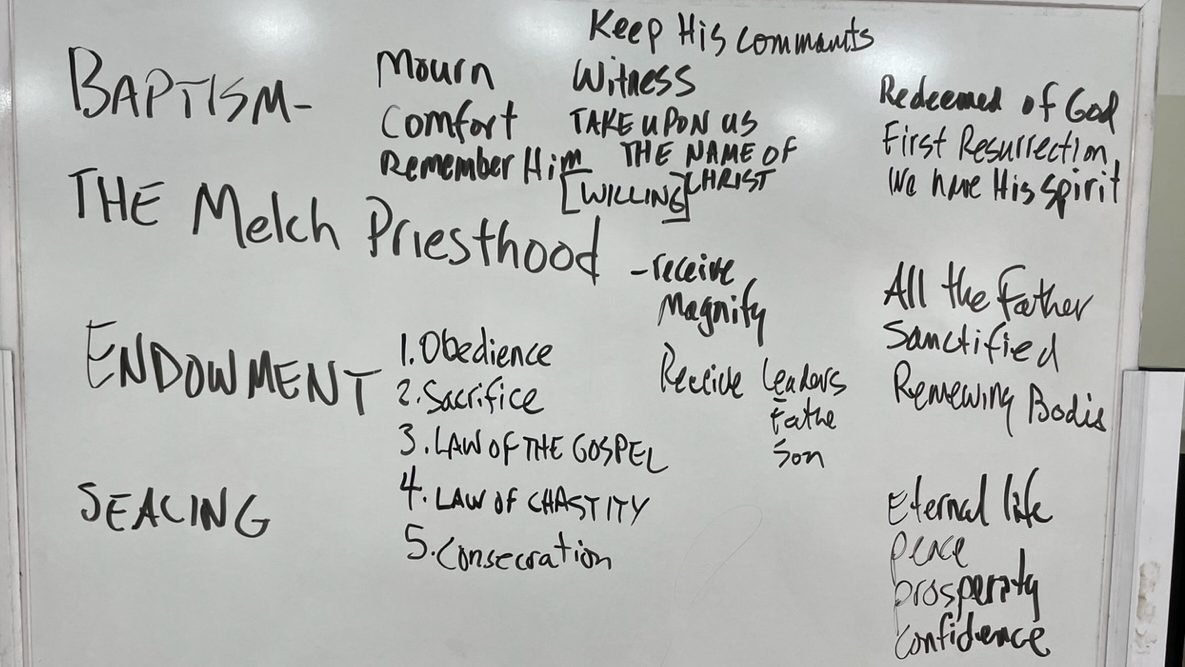 Keep His commants
BAPTISM-
Mourn
Comfort
Remember Him
Witness
TAKE UPON US
THE NAME OF
CHRIST
[WILLING]
Redeemed of God
First Resurrection,
We have His Spirit
THE Melch Priesthood
-receive
Magnify
Receive Leaders
Fathe
Son
All the Father
Sanctified
Renewing Bodis
ENDOWMENT
1. Obedience
2. Sacrifice
3. LAW OF THE GOSPEL
4. LAW OF CHASTITY
5. Consecration
SEALING
Eternal life
Peace
Prosperity
Confidence